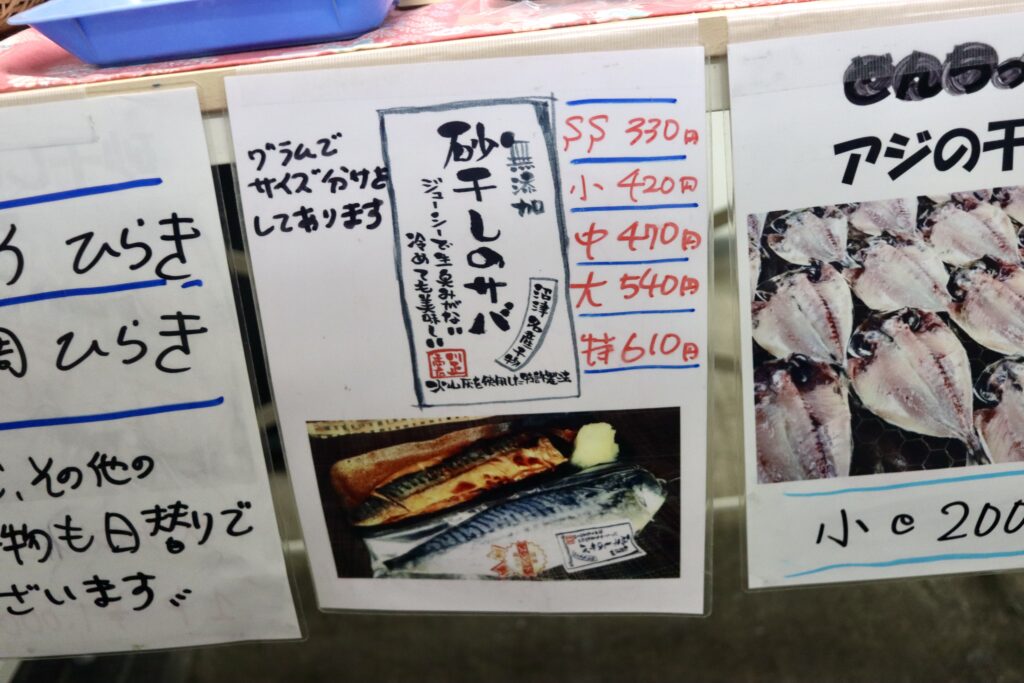 ひらき
ひらき
、その他の
物も日替りで
ざいます
グラムで
サイズ分けと
してあります
無添加
砂干しのサバ
ジューシーで生臭みがない
冷めても美味しい
沼津名産干物
火山灰を使用した特許製法
SS 330円
小 420円
中 470円
大 540円
特 610円
アジの干
小@200